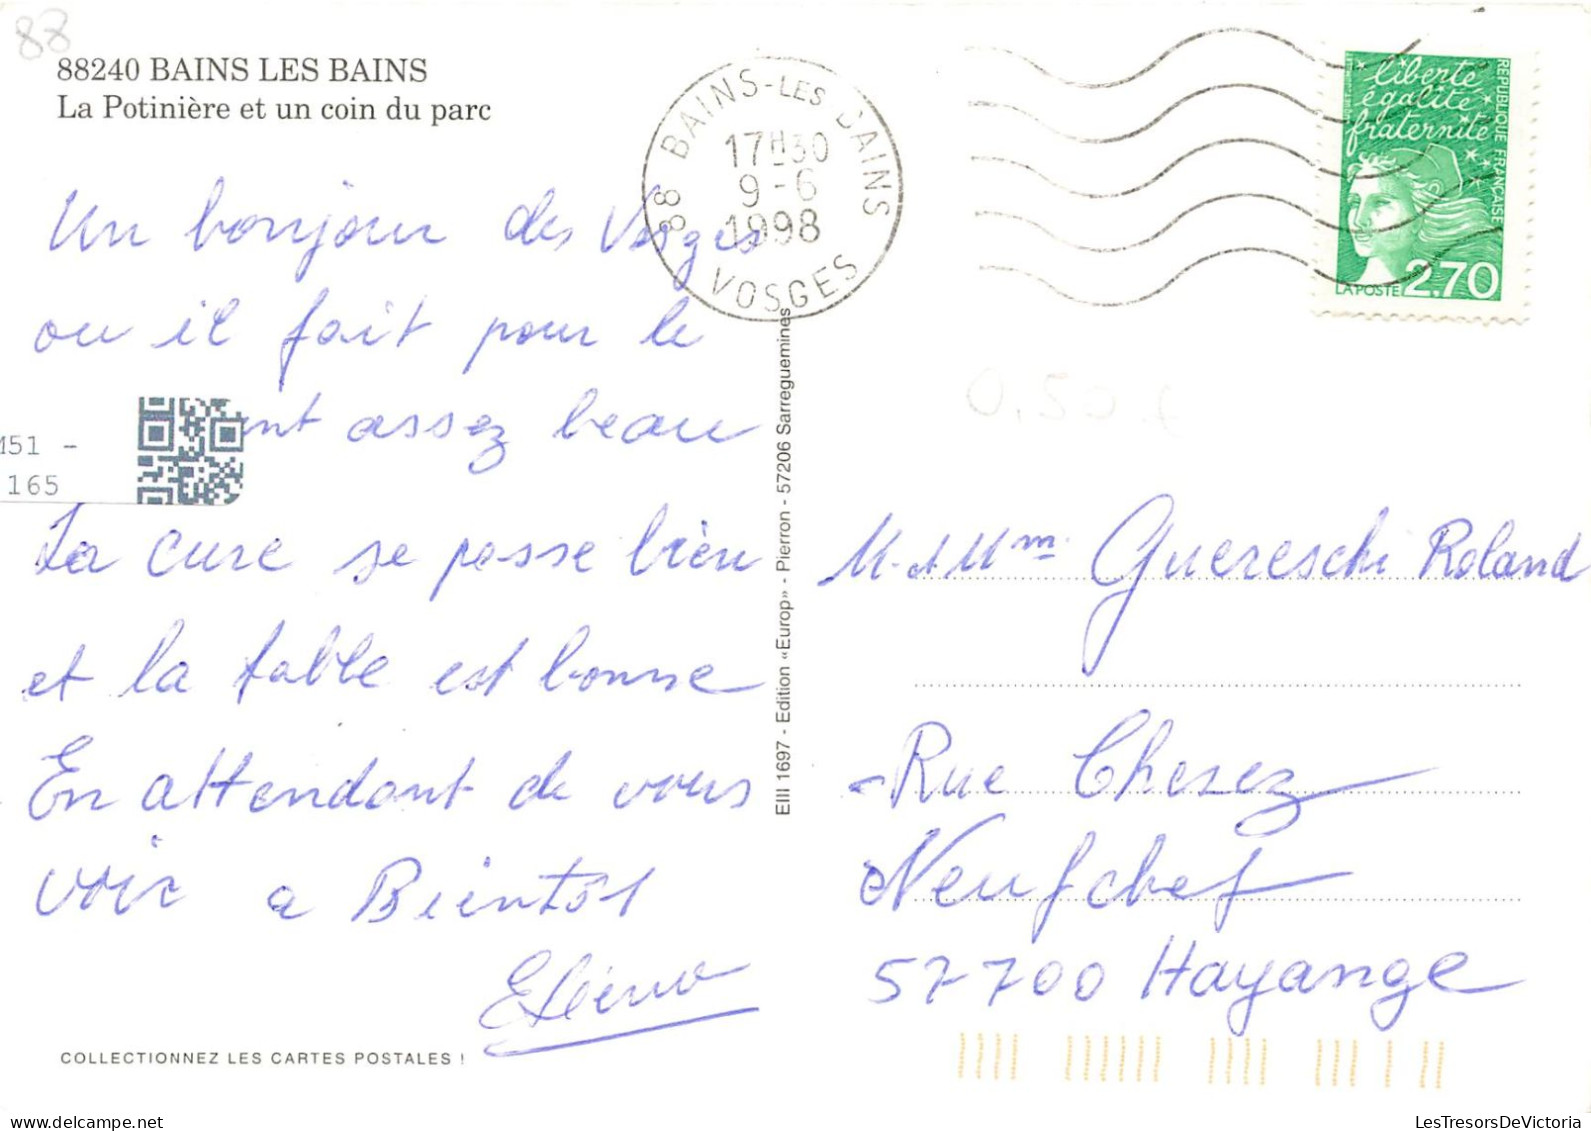 88
88240 BAINS LES BAINS
La Potinière et un coin du parc
88 BAINS-LES BAINS
17H30
9-6
1998
VOSGES
liberté
égalité
fraternité
REPUBLIQUE FRANCAISE
LA POSTE 2,70
Un bonjour des Vosges
ou il fait pour le
assez beau
M51 -
165
La cure se passe bien
et la table est bonne
En attendant de vous
voir a Bientôt
EIII 1697 - Edition «Europ» - Pierron - 57206 Sarreguemines
0,50 €
M. et Mme Guereschi Roland
Rue Chesez
Neufchef
57700 Hayange
COLLECTIONNEZ LES CARTES POSTALES !
LesTresorsDeVictoria
delcampe.net